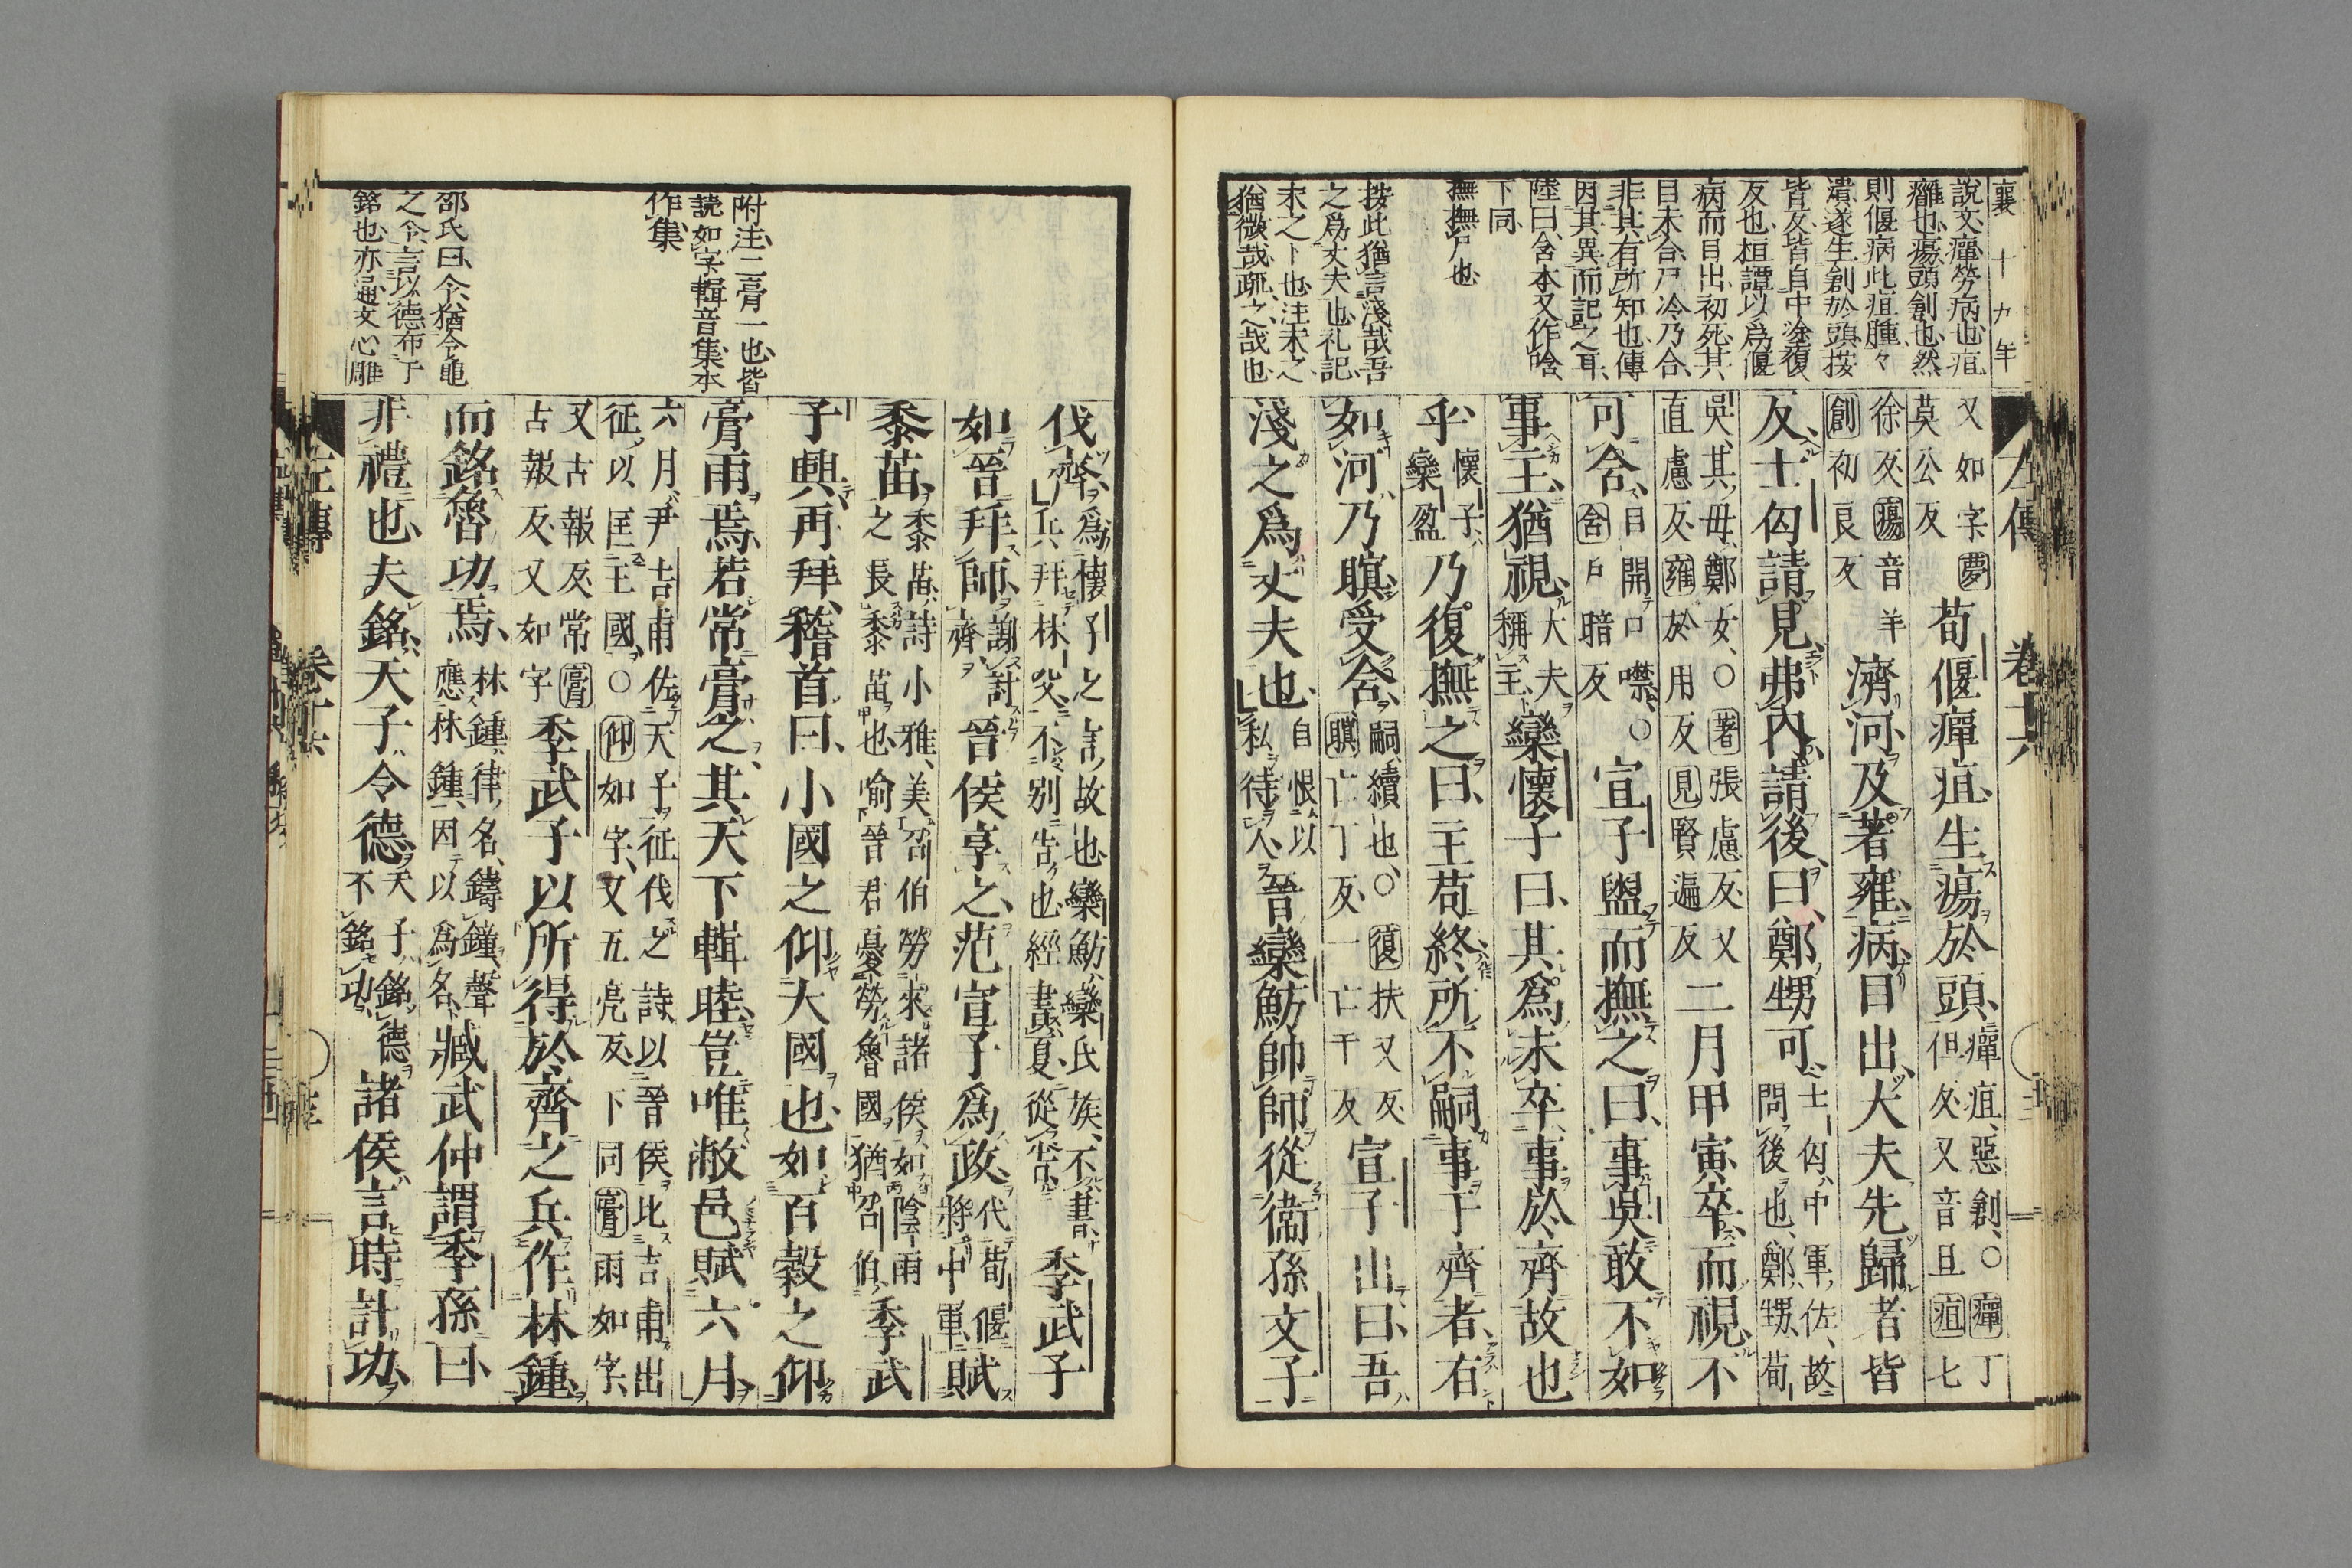 襄十九年
說文癉勞病也疽
癰也瘍頭創也然
則偃病此疽腫々
潰遂生創於頭按
皆反皆自中塗復
反也桓譚以爲偃
病而目出初死其
目未合尸冷乃合
非其有所知也傳
因其異而記之耳
陸曰含本又作唅
下同
撫撫尸也
按此猶言淺哉吾
之爲丈夫也礼記
末之卜也注末之
猶微哉疏之哉也
左傳 卷十六
又如字夢
莫公反
荀偃癉疽生瘍於頭
癉疽惡創○癉丁
但反又音旦疽七
徐反瘍音羊
創初良反
濟河及著雍病目出大夫先歸者皆
反士匄請見弗內請後曰鄭甥可
士匄中軍佐故
問後也鄭甥荀
吳其母鄭女○著張慮反又
直慮反雍於用反見賢遍反
二月甲寅卒而視不
可含
目開口噤○
含戶暗反
宣子盥而撫之曰事吳敢不如
事主猶視
大夫
稱主
欒懷子曰其爲未卒事於齊故也
乎
懷子
欒盈
乃復撫之曰主荀終所不嗣事于齊者有
如河乃瞑受含
嗣續也○復扶又反
瞑亡丁反一亡千反
宣子出曰吾
淺之爲丈夫也
自恨以
私待人
晉欒魴帥師從衛孫文子
伐齊
爲懷子之言故也欒魴欒氏族不書
兵拜林父不別告也經書夏從告
季武子
如晉拜師
謝討
齊
晉侯享之范宣子爲政
代荀偃
將中軍
賦
黍苗
黍苗詩小雅美召伯勞來諸侯如陰雨
之長黍苗也喻晉君憂勞魯國猶召伯
季武
子興再拜稽首曰小國之仰大國也如百穀之仰
膏雨焉若常膏之其天下輯睦豈唯敝邑賦六月
六月尹吉甫佐天子征伐之詩以晉侯比吉甫出
征以匡王國○仰如字又五亮反下同膏雨如字
又古報反常膏
古報反又如字
季武子以所得於齊之兵作林鍾
而銘魯功焉
林鍾律名鑄鐘聲
應林鍾因以爲名
臧武仲謂季孫曰
非禮也夫銘天子令德
天子銘德
不銘功
諸侯言時計功
附注二膏一也皆
読如字輯音集本
作集
邵氏曰令猶令龜
之令言以德布于
銘也亦通文心雕
左傳 卷十六